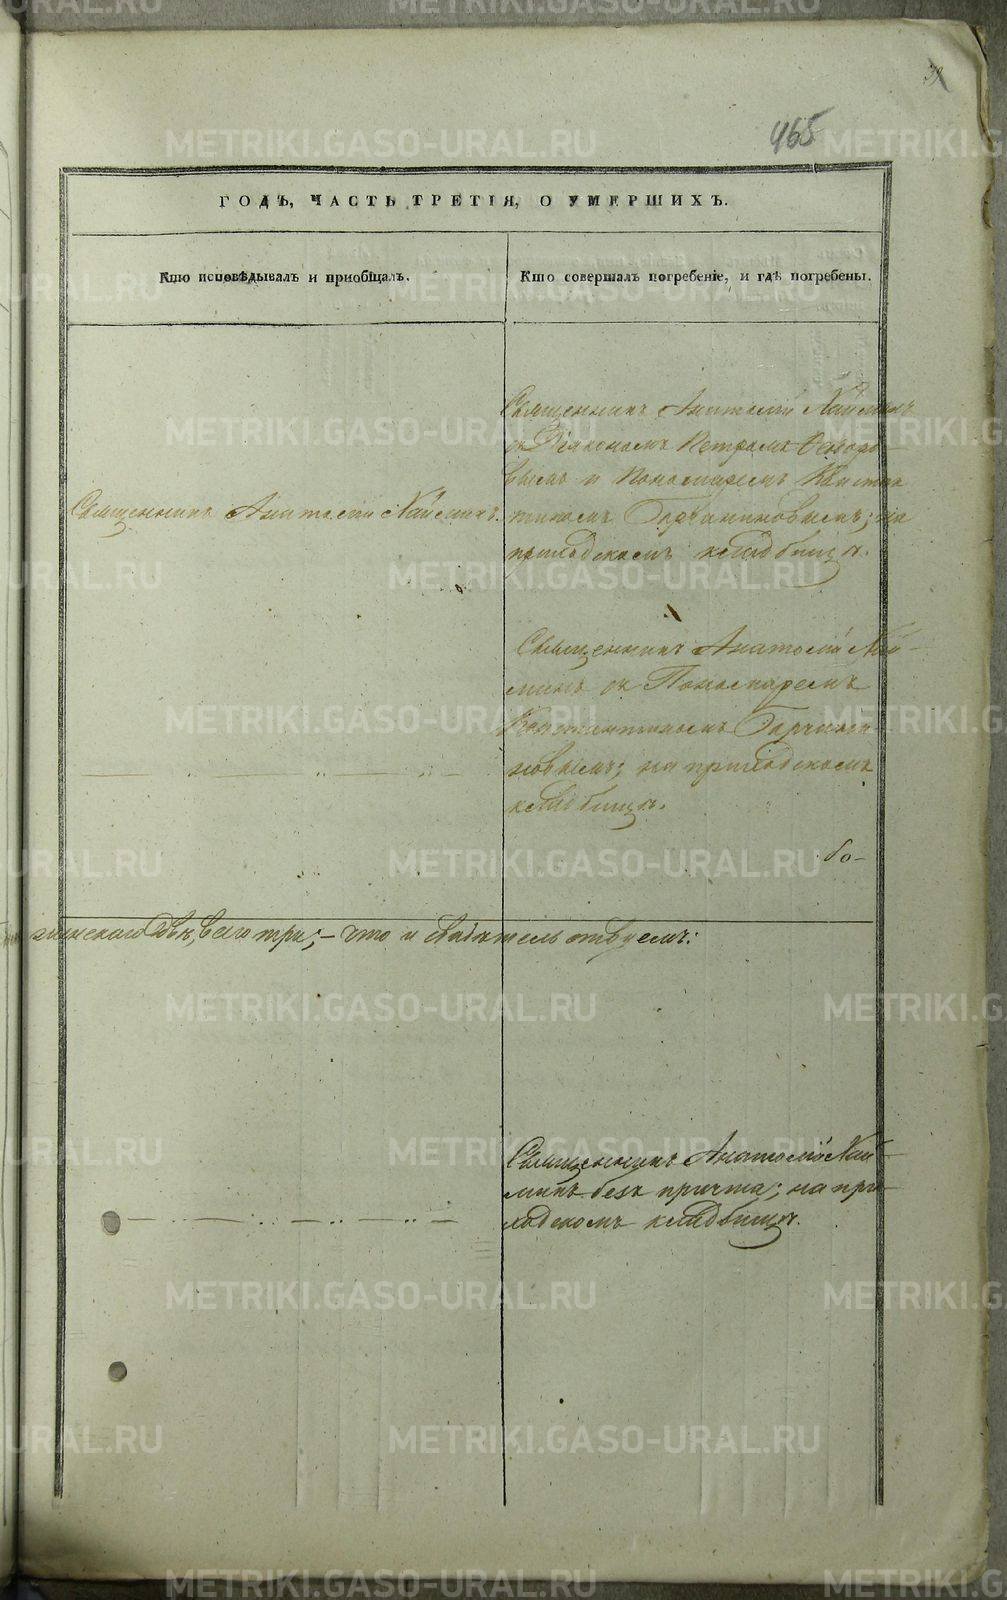 465
ГОДЪ, ЧАСТЬ ТРЕТІЯ, О УМЕРШИХЪ.
Кто исповѣдывалъ и приобщалъ.
Кто совершалъ погребеніе, и гдѣ погребены.
Священникъ Анатолій Най
Священникъ Анатолій Най
съ Діакономъ Петромъ Ѳедоро-
вымъ и Пономаремъ Констан
тиномъ на
приходскомъ кладбищѣ.
Священникъ Анатолій Най-
минъ съ Пономаремъ
Константиномъ
новымъ; на приходскомъ
кладбищѣ.
бо-
всего три; – что и свидѣтельствуемъ:
Священникъ Анатолій Най-
минъ безъ причта; на при-
ходскомъ кладбищѣ.
METRIKI.GASO-URAL.RU